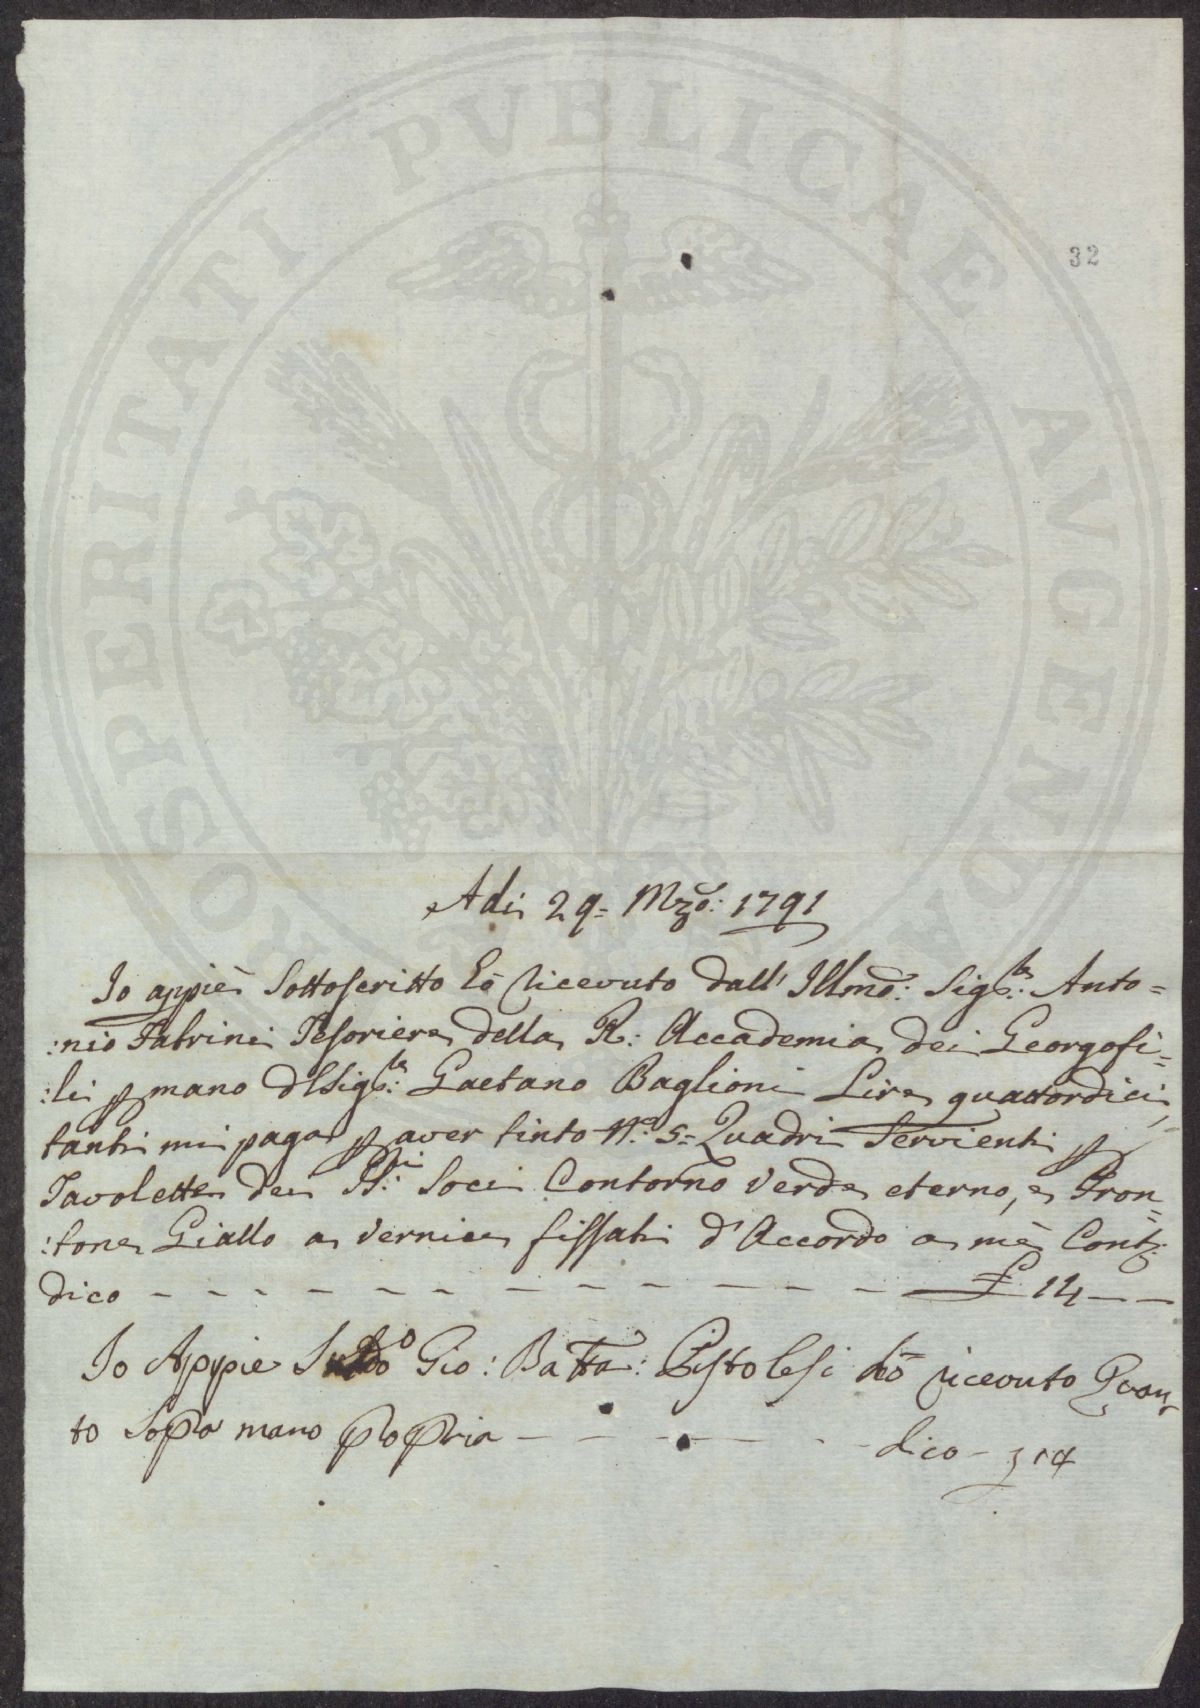 PROSPERITATI PVBLICAE AVGENDAE
32
Adi 29= Mzo: 1791
Io appiè Sottoscritto hò ricevuto dall' Illmo: Sigre: Anto=
:nio Fabrini Tesoriere della R: Accademia dei Georgofi=
:li p mano dl Sigre: Gaetano Baglioni Lire quattordici,
tanti mi paga p aver tinto No: 5= Quadri Servienti p
Tavolette dei SSi: Soci Contorno Verde eterno, e Fron=
:tone Giallo a vernice fissati d'Accordo a mè Cont:
dico - - - - - - - - - - - - - £ 14 - -
Io Appie Gio: Batta: Pistolesi hò ricevuto Quan
to Sopra mano propria - - - - - dico - 14